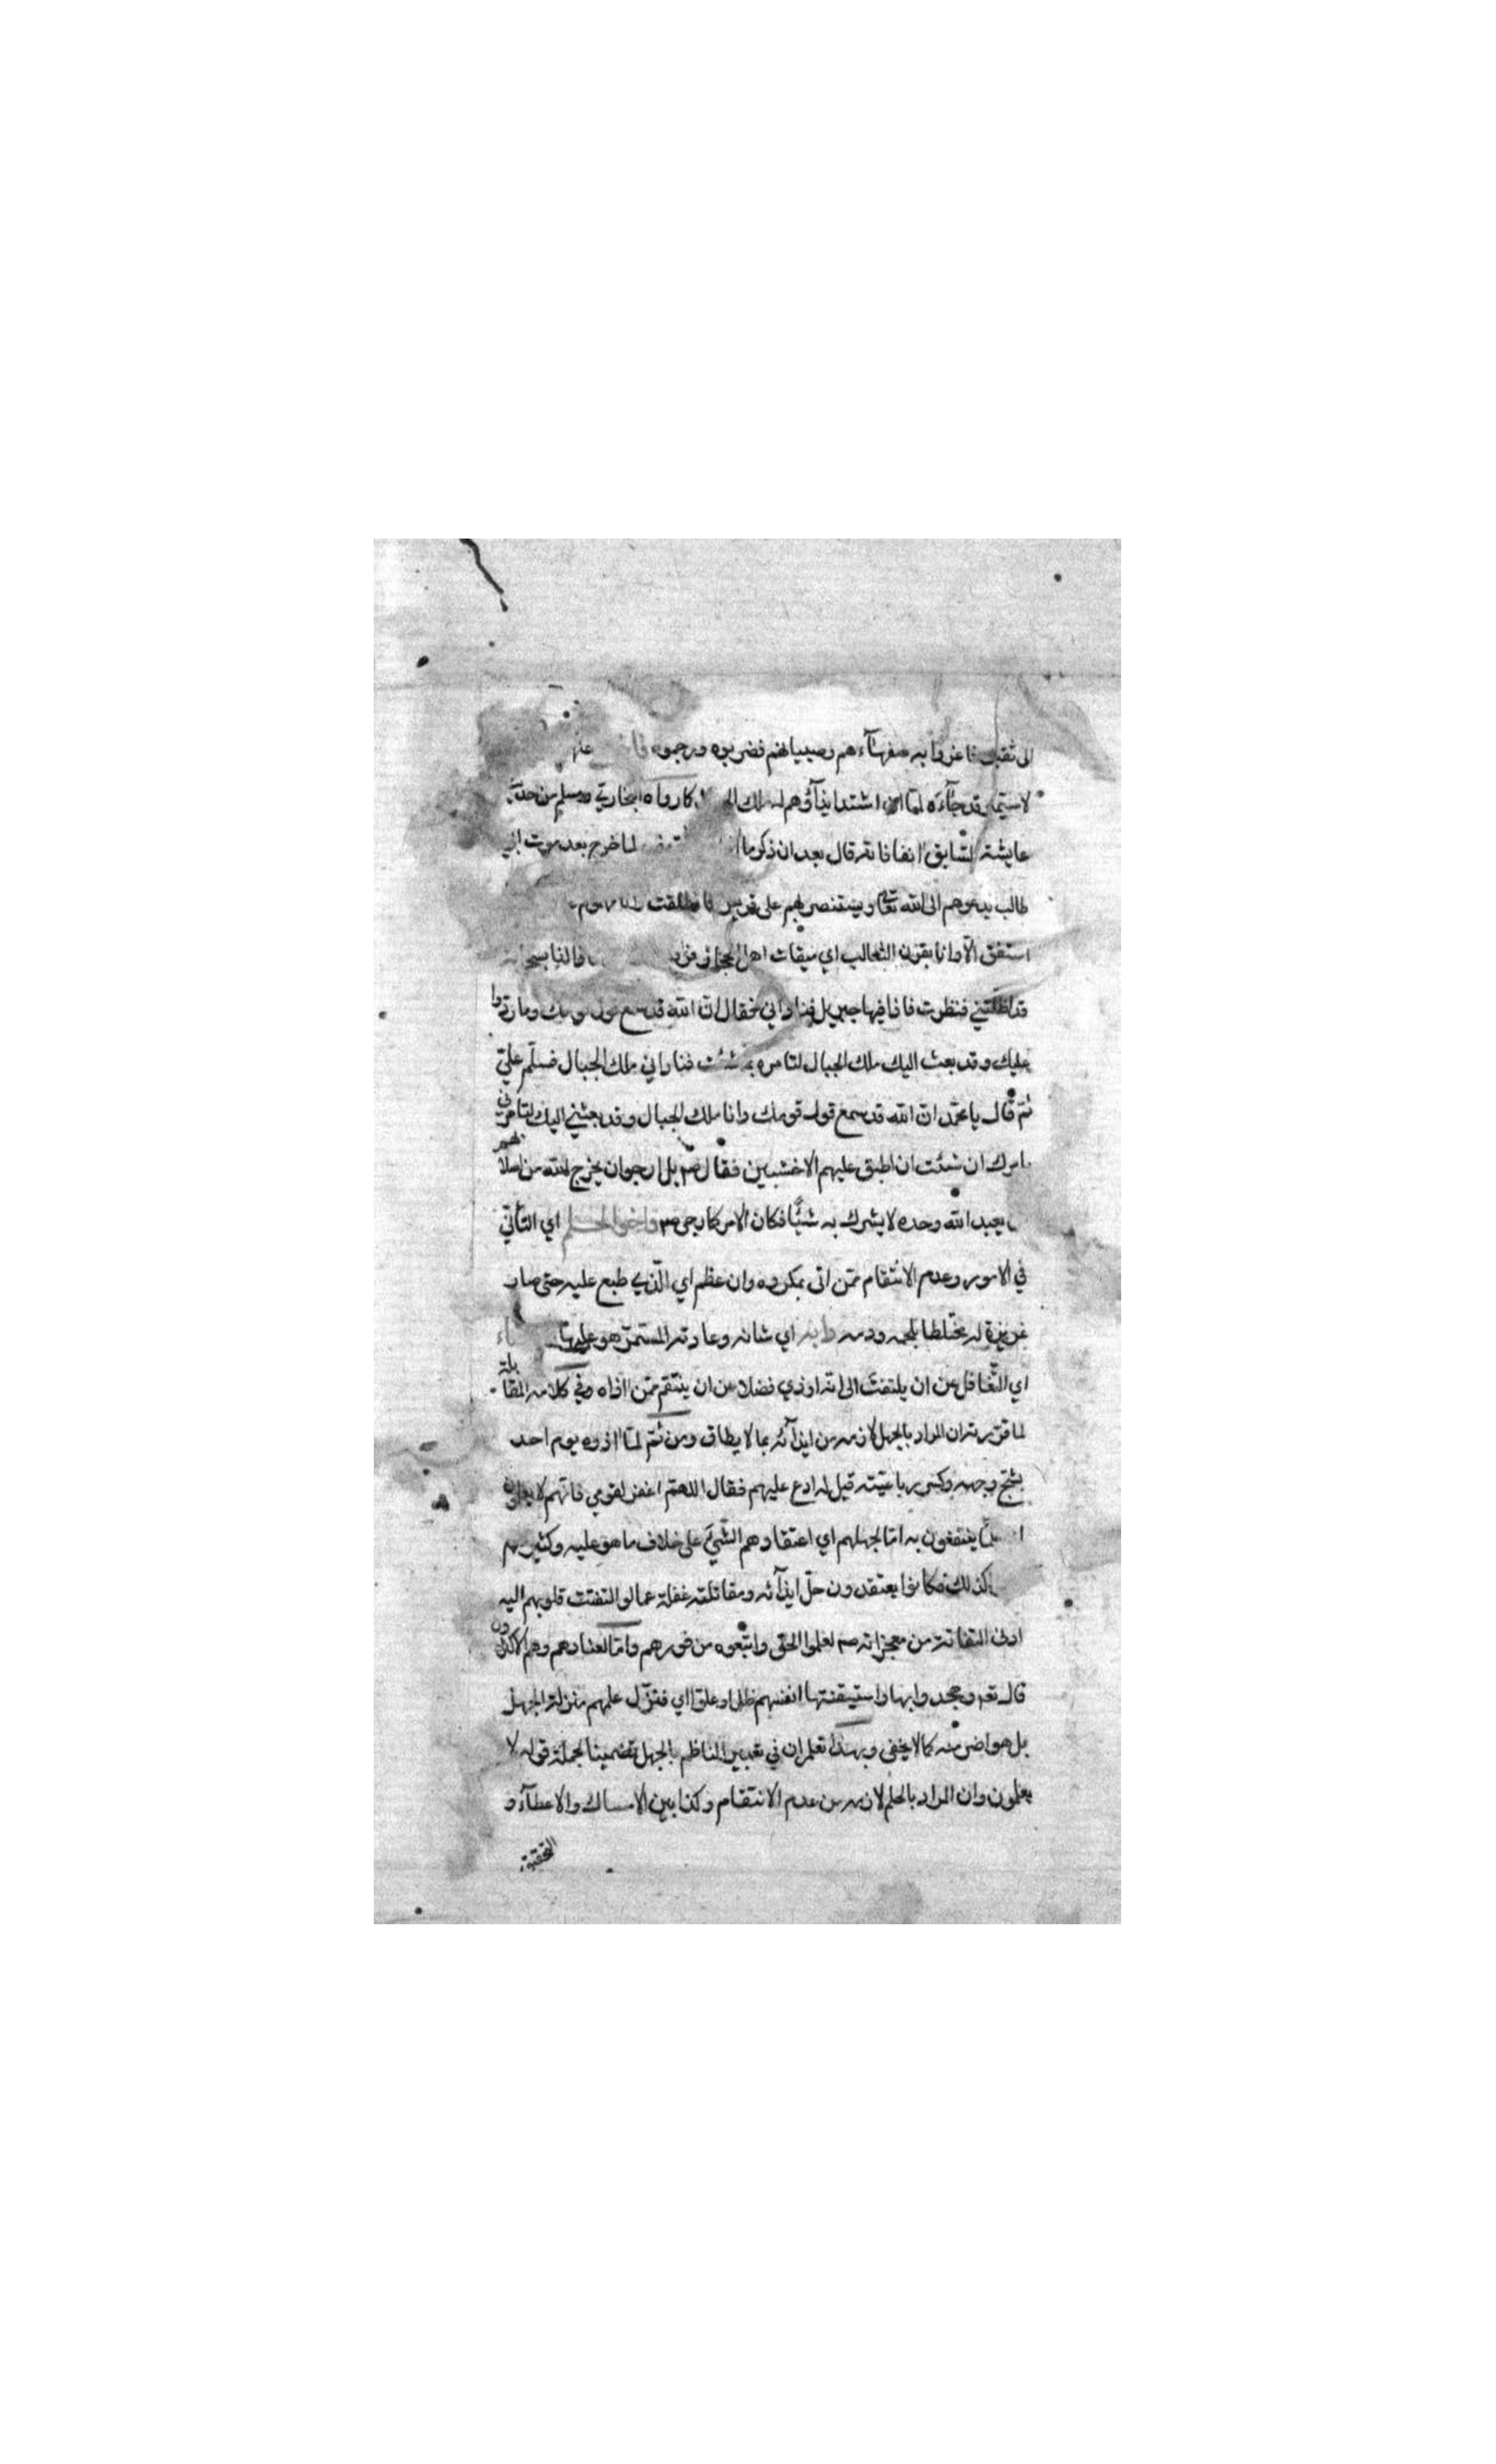 الى ثقيف فاغروا به سفهآءهم وصبيانهم فضربوه ورجموه
لاسيما وقد جآءه لما ان اشتد ايذآؤهم له ملك كما رواه البخاري ومسلم من حديث
عايشة السابق انفا فانه قال بعد ان ذكر ما لما خرج بعد موت ابي
طالب يدعوهم الى الله تعا ويستنصر بهم على قريش فانطلقت
استفق الا وانا بقرن الثعالب اي ميقات اهل فاذا بسحابة
قد اظلتني فنظرت فاذا فيها جبريل فناداني فقال ان الله قد سمع قول قومك وما ردوا
عليك وقد بعث اليك ملك الجبال لتامره بما شئت فناداني ملك الجبال فسلم علي
ثم قال يا محمد ان الله قد سمع قول قومك وانا ملك الجبال وقد بعثني اليك لتامرني
بامرك ان شئت ان اطبق عليهم الاخشبين فقال صم بل ارجو ان يخرج الله من اصلابهم
يعبد الله وحده لا يشرك به شيئا فكان الامر كما رجى صم واخو الحلم اي التأني
في الامور وعدم الانتقام ممن اتى بمكروه وان عظم اي الذي طبع عليه حتى صار
غريزة له مختلطا بلحمه ودمه دابه اي شانه وعادته المستمر هو عليها
اي التغافل عن ان يلتفت الى انه اوذي فضلا عن ان ينتقم ممن اذاه وفي كلامه المقابلة
لما قررته ان المراد بالجهل لازمه من ايذآئه بما لا يطاق ومن ثم لما اذوه يوم احد
بشج وجهه وكسر رباعيته قيل له ادع عليهم فقال اللهم اغفر لقومي فانهم لا يعلمون
ينتفعون به اما لجهلهم اي اعتقادهم الشيء على خلاف ما هو عليه وكثير منهم
كذلك فكانوا يعتقدون حل ايذآئه ومقاتلته غفلة عما لو التفتت قلوبهم اليه
ادنى التفاتة من معجزاته صم لعلموا الحق واتبعوه من فورهم واما لعنادهم وهم الاكثرون
قال تعم وجحدوا بها واستيقنتها انفسهم ظلما وعلوا اي فنزل علمهم منزلة الجهل
بل هو اضر منه كما لا يخفى وبهذا تعلم ان في تعبير الناظم بالجهل تضمينا لجملة قوله لا
يعلمون وان المراد بالحلم لازمه من عدم الانتقام وكذا بين الامساك والاعطآء و